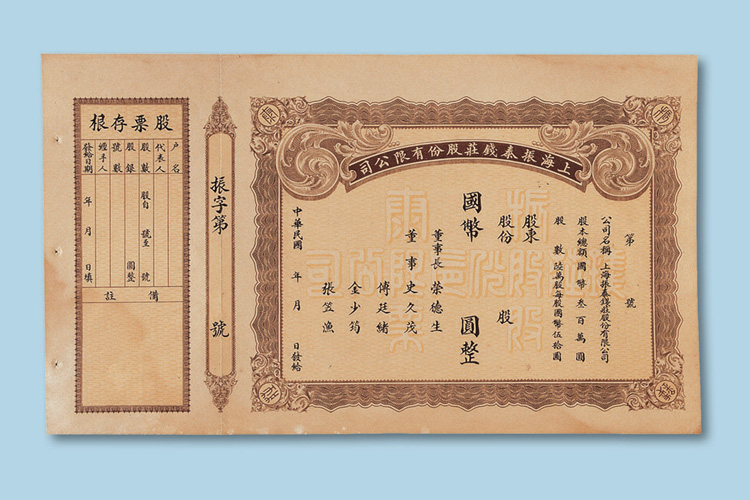 上海振泰錢莊股份有限公司
第　號
公司名稱 上海振泰錢莊股份有限公司
股本總額國幣叁百萬圓
股　數陸萬股每股國幣伍拾圓
股東
股份　股
國幣　圓整
董事長 榮德生
董事 史久茂
傅廷緒
金少筠
張笠漁
中華民國　年　月　日發給
振字第　號
股票存根
户名
代表人
股數　股自　號至　號
股銀　圓整
號數
經手人
發給日期　年　月　日填
備註